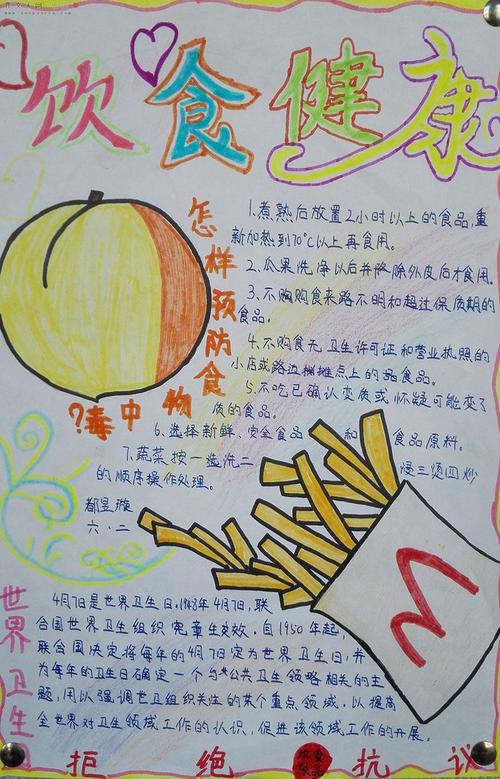 饮食健康
怎样预防食物中毒?
1.煮熟后放置2小时以上的食品,重
新加热到70℃以上再食用。
2.瓜果洗净以后并除外皮后才食用。
3.不购购食来路不明和超过保质期的
食品。
4.不购食无卫生许可证和营业执照的
小店或路边摊点上的品食品。
5.不吃已确认变质或怀疑可能变了
质的食品。
6.选择新鲜、安全食品和食品原料。
7.蔬菜按一选洗二浸三烫四炒
的顺序操作处理。
都昱璇
六·二
世界卫生
4月7日是世界卫生日,1948年4月7日,联
合国世界卫生组织宪章生效。自1950年起,
联合国决定将每年的4月7日定为世界卫生日,并
为每年的卫生日确定一个与公共卫生领略相关的主
题,用以强调世卫组织关注的某个重点领域,以提高
全世界对卫生领域工作的认识,促进该领域工作的开展。
拒绝抗议